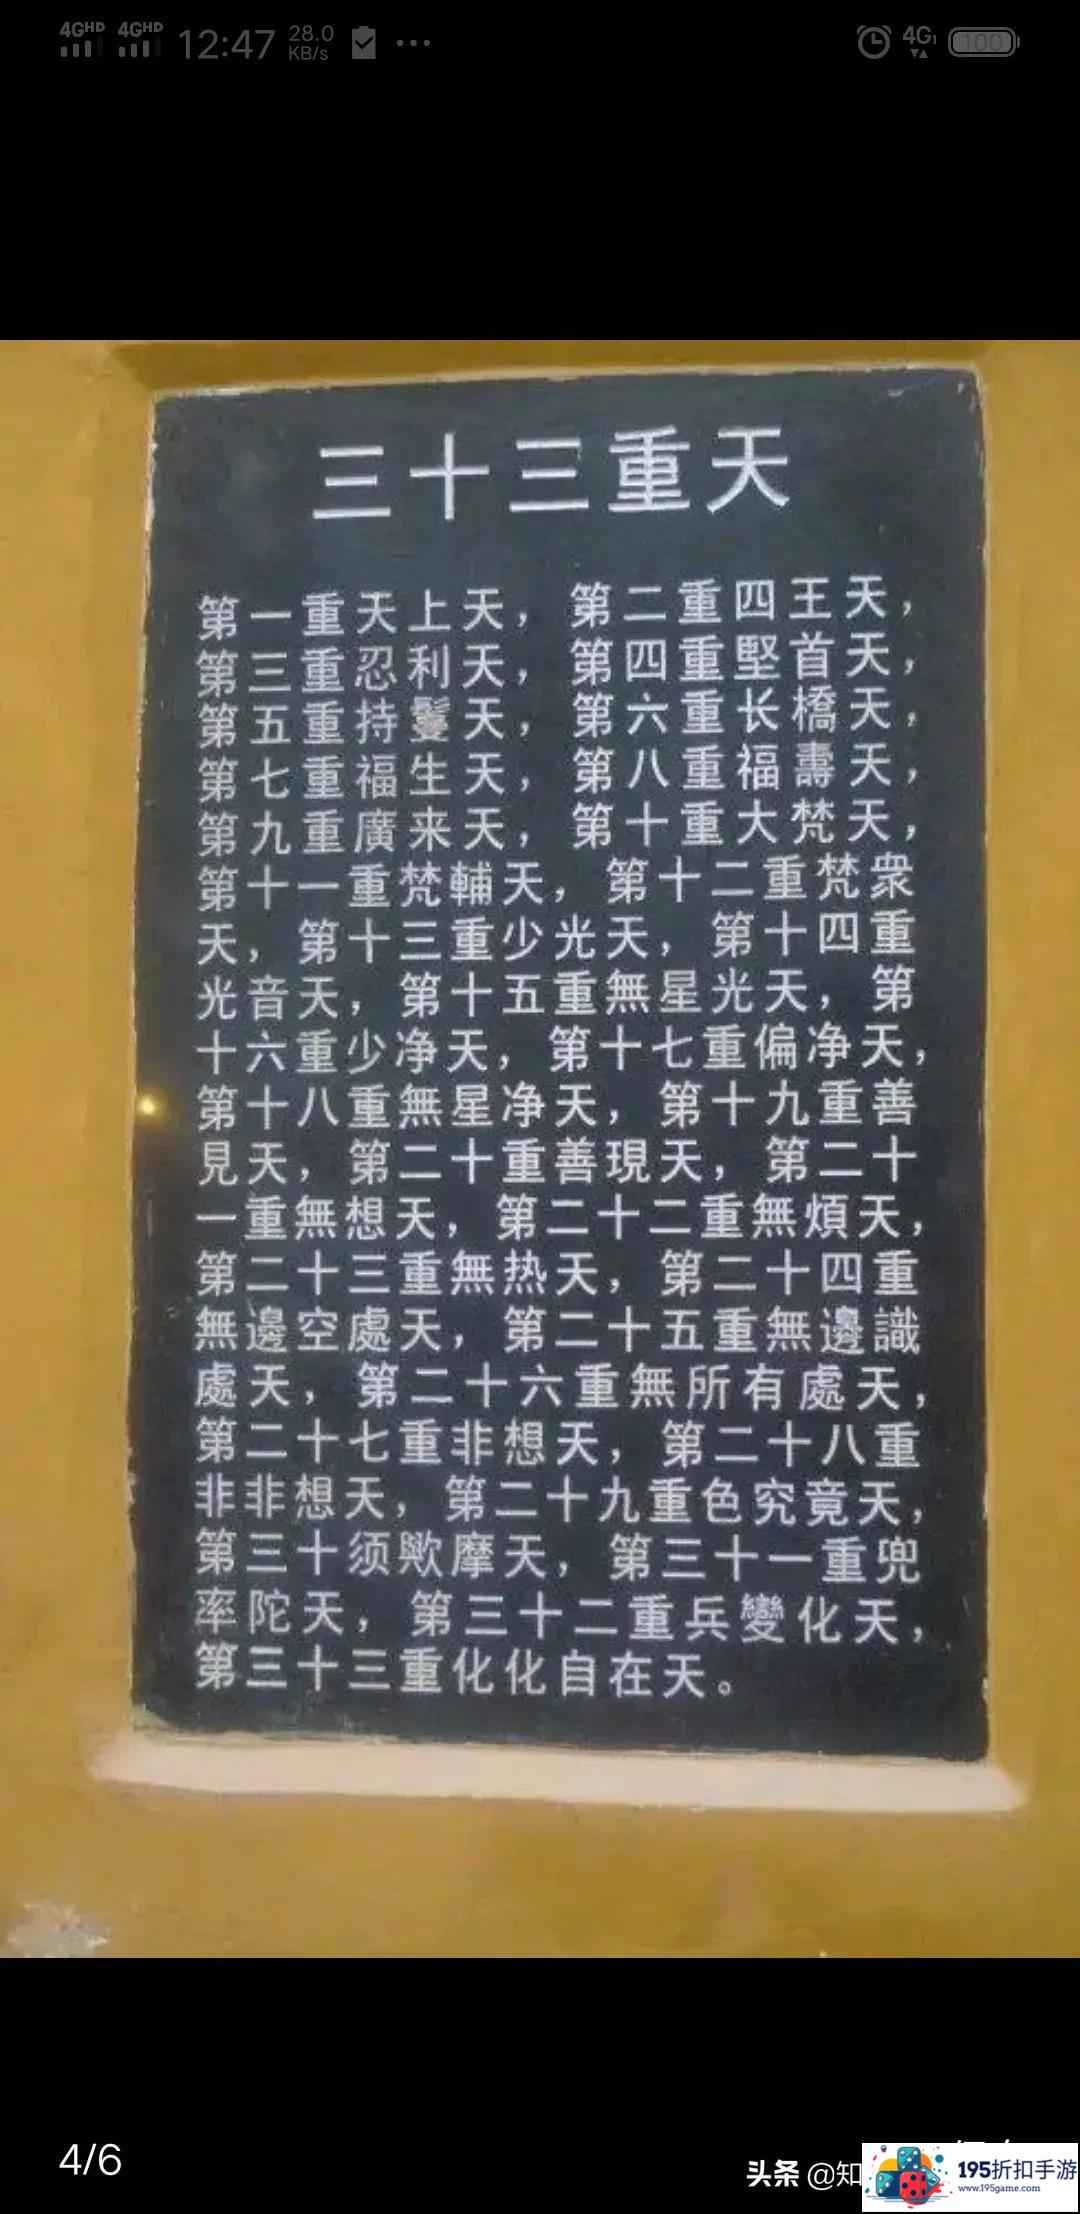 4GHD 4GHD 12:47 28.0 KB/s 4G 100
三十三重天
第一重天上天，第二重四王天，
第三重忍利天，第四重堅首天，
第五重持鬘天，第六重长橋天，
第七重福生天，第八重福壽天，
第九重廣来天，第十重大梵天，
第十一重梵輔天，第十二重梵衆
天，第十三重少光天，第十四重
光音天，第十五重無星光天，第
十六重少净天，第十七重偏净天，
第十八重無星净天，第十九重善
見天，第二十重善現天，第二十
一重無想天，第二十二重無煩天，
第二十三重無热天，第二十四重
無邊空處天，第二十五重無邊識
處天，第二十六重無所有處天，
第二十七重非想天，第二十八重
非非想天，第二十九重色究竟天，
第三十须歟摩天，第三十一重兜
率陀天，第三十二重兵變化天，
第三十三重化化自在天。
4/6
头条 @知
195折扣手游
www.195game.com